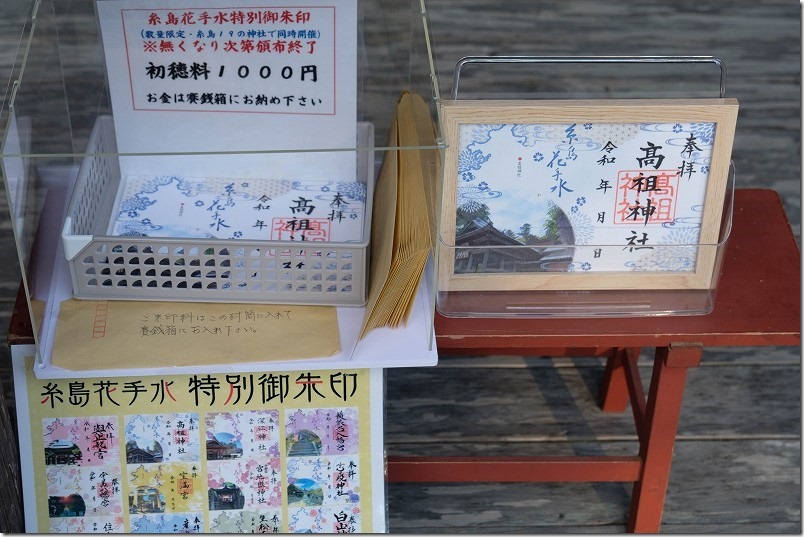 糸島花手水特別御朱印
(数量限定・糸島19の神社で同時開催)
※無くなり次第頒布終了
初穂料1000円
お金は賽銭箱にお納め下さい
奉拝
高祖神社
糸島
花手水
令和 年
奉拝
高祖神社
高祖神社
糸島
花手水
令和 年 月 日
ご朱印料はこの封筒に入れて
賽銭箱にお入れ下さい。
糸島花手水 特別御朱印
奉拝
高祖神社
奉拝
深江神社
奉拝
奉拝
宮地嶽神社
奉拝
白山